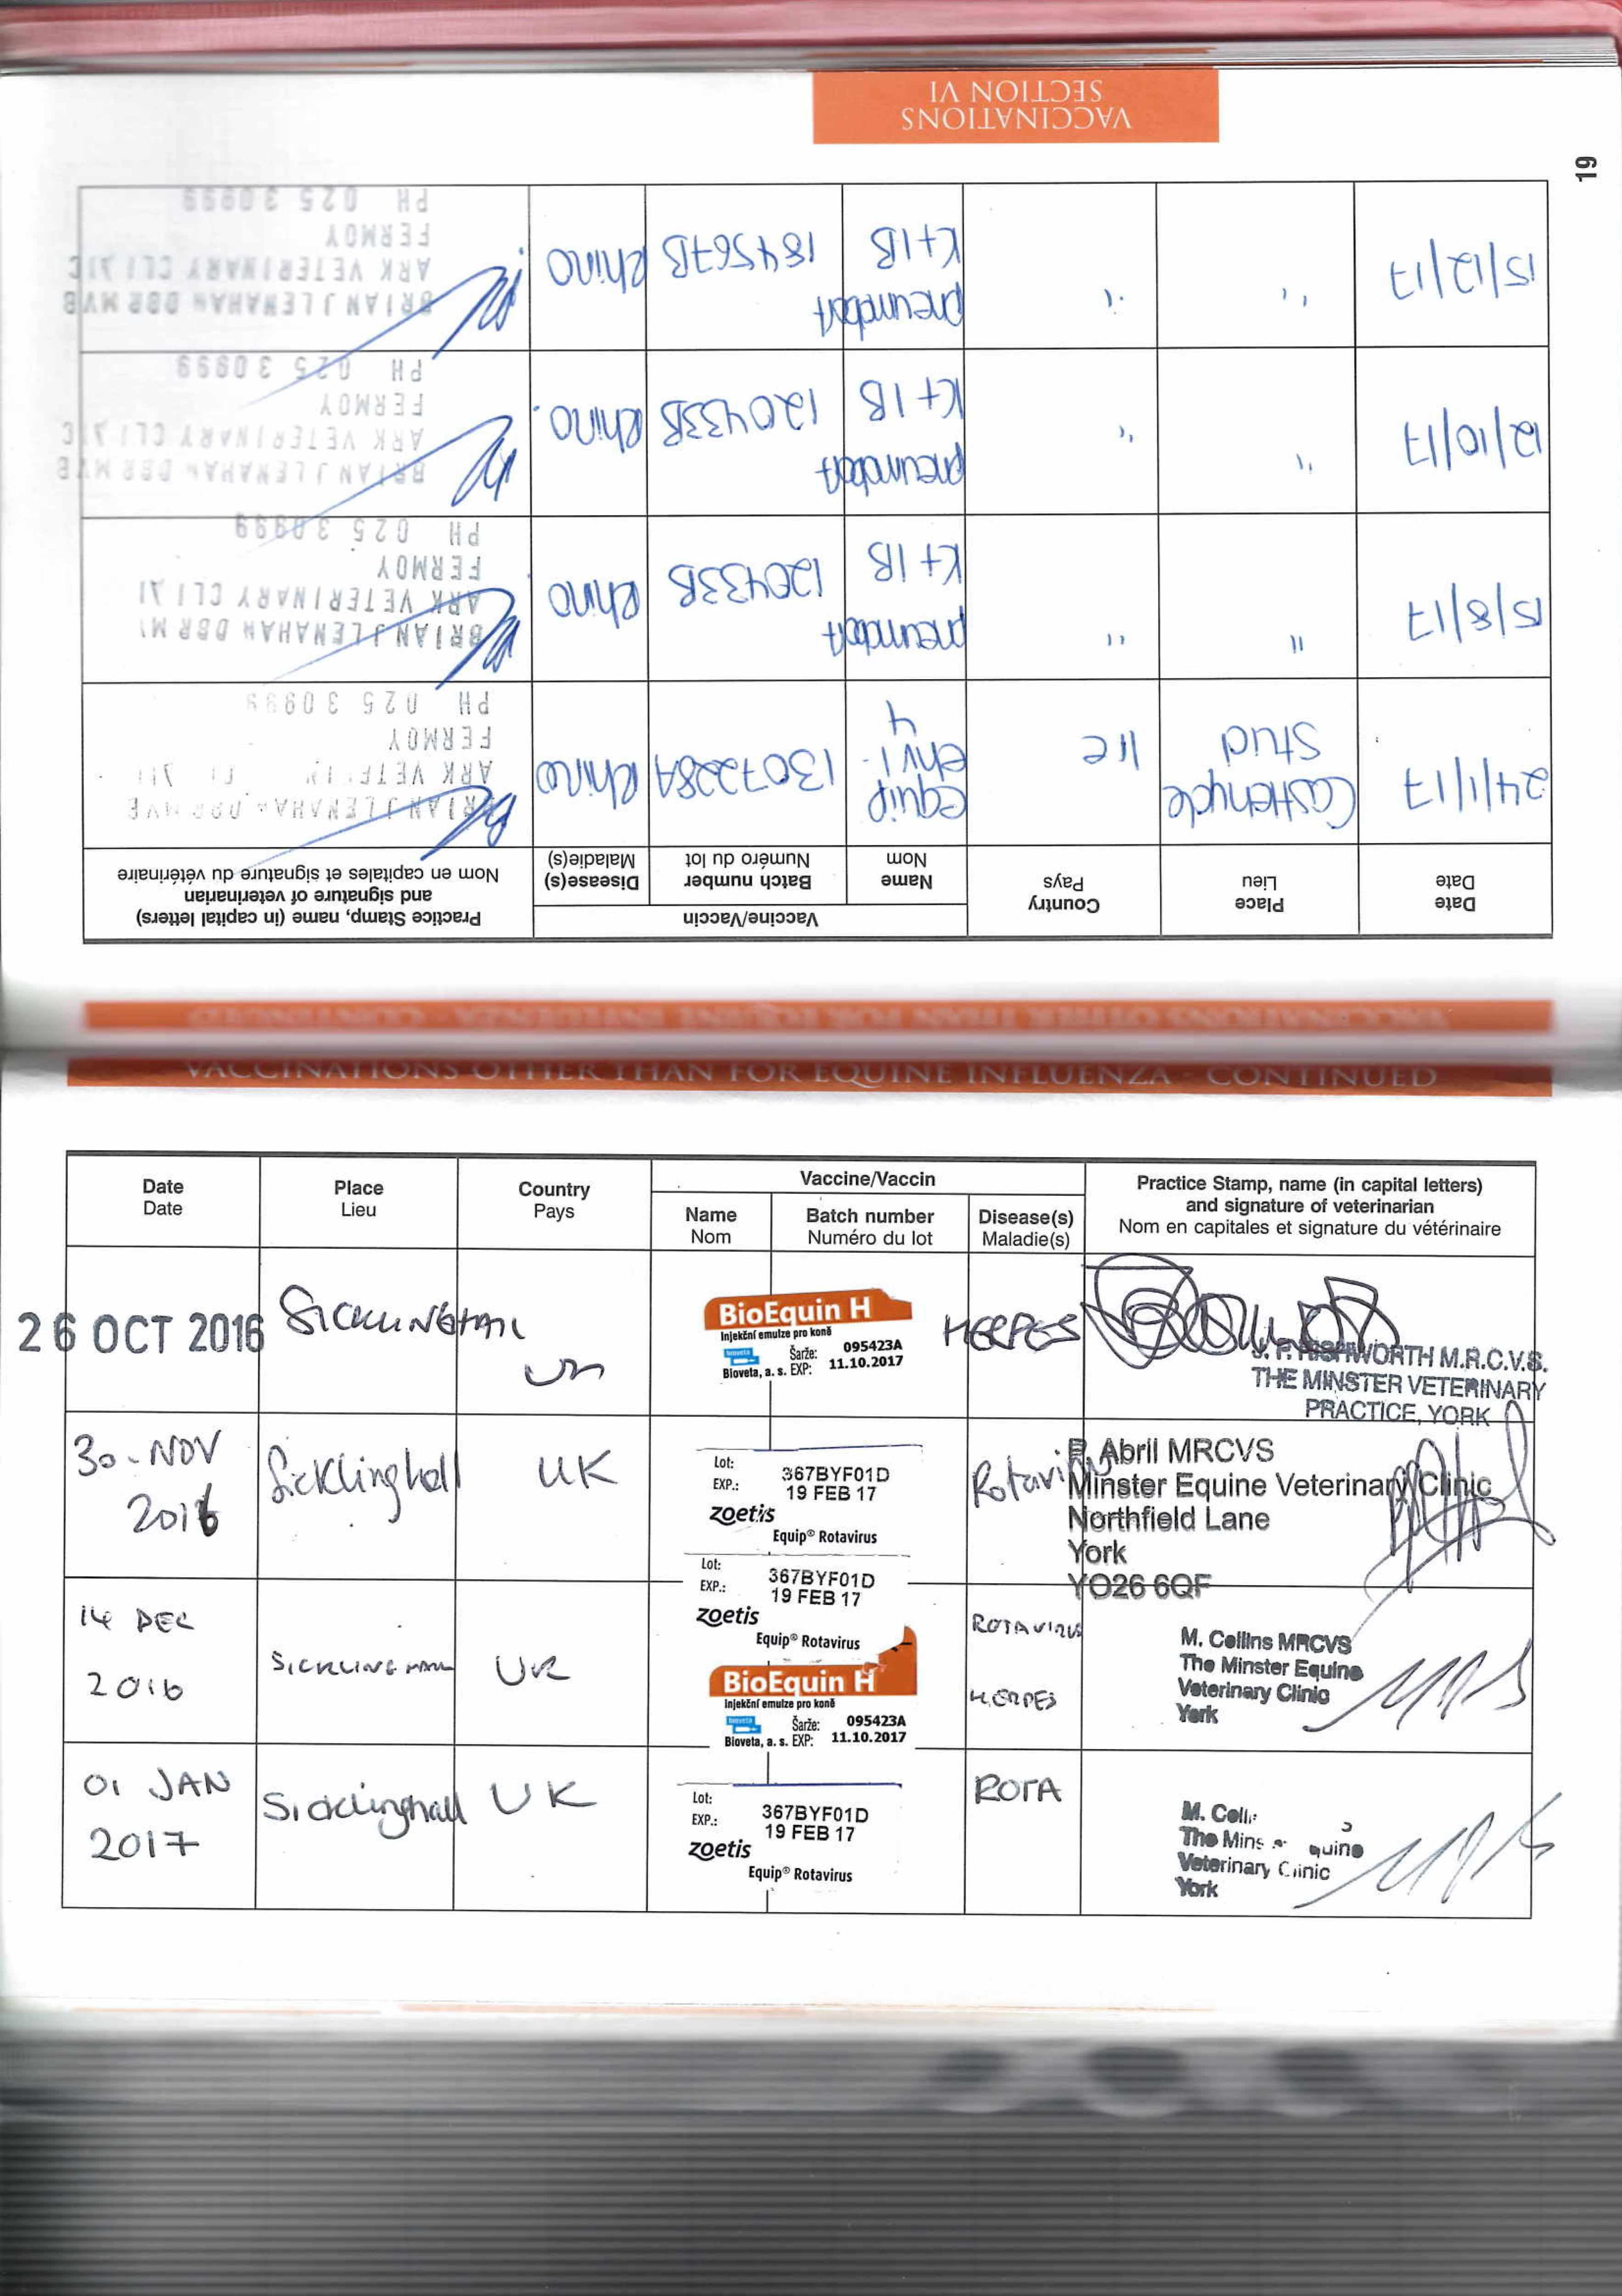 VACCINATIONS OTHER THAN FOR EQUINE INFLUENZA - CONTINUED
Date
Date
Place
Lieu
Country
Pays
Vaccine/Vaccin
Name
Nom
Batch number
Numéro du lot
Disease(s)
Maladie(s)
Practice Stamp, name (in capital letters)
and signature of veterinarian
Nom en capitales et signature du vétérinaire
24/1/17
Stud
Ire
equip
ehv1-
4
1307228A
Rhino
BRIAN J LENAHAN DBR MVB
ARK
FERMOY
PH 025 30999
15/8/17
"
"
pneumabort
K+1B
120433B
Rhino
BRIAN J LENAHAN DBR
ARK VETERINARY
FERMOY
PH 025 30999
12/10/17
"
"
pneumabort
K+1B
120433B
Rhino.
BRIAN J LENAHAN DBR MVB
ARK VETERINARY
FERMOY
PH 025 30999
15/12/17
"
"
pneumabort
K+1B
184567B
Rhino
BRIAN J LENAHAN DBR MVB
ARK VETERINARY
FERMOY
PH 025 30999
VACCINATIONS
SECTION VI
19
VACCINATIONS OTHER THAN FOR EQUINE INFLUENZA - CONTINUED
Date
Date
Place
Lieu
Country
Pays
Vaccine/Vaccin
Name
Nom
Batch number
Numéro du lot
Disease(s)
Maladie(s)
Practice Stamp, name (in capital letters)
and signature of veterinarian
Nom en capitales et signature du vétérinaire
26 OCT 2016
SICKLINGHALL
UK
BioEquin H
Injekční emulze pro koně
bioveta
Šarže: 095423A
Bioveta, a. s. EXP: 11.10.2017
HERPES
M.R.C.V.S.
THE MINSTER VETERINARY
PRACTICE, YORK
30-NOV
2016
Sicklinghall
UK
Lot: 367BYF01D
EXP.: 19 FEB 17
zoetis
Equip® Rotavirus
Rotavirus
Abril MRCVS
Minster Equine Veterinary Clinic
Northfield Lane
York
YO26 6QF
14 DEC
2016
SICKLINGHALL
UK
Lot: 367BYF01D
EXP.: 19 FEB 17
zoetis
Equip® Rotavirus
BioEquin H
Injekční emulze pro koně
bioveta
Šarže: 095423A
Bioveta, a. s. EXP: 11.10.2017
ROTAVIRUS
HERPES
M. Collins MRCVS
The Minster Equine
Veterinary Clinic
York
01 JAN
2017
Sicklinghall
UK
Lot: 367BYF01D
EXP.: 19 FEB 17
zoetis
Equip® Rotavirus
ROTA
M. Colli
The Mins quine
Veterinary Clinic
York